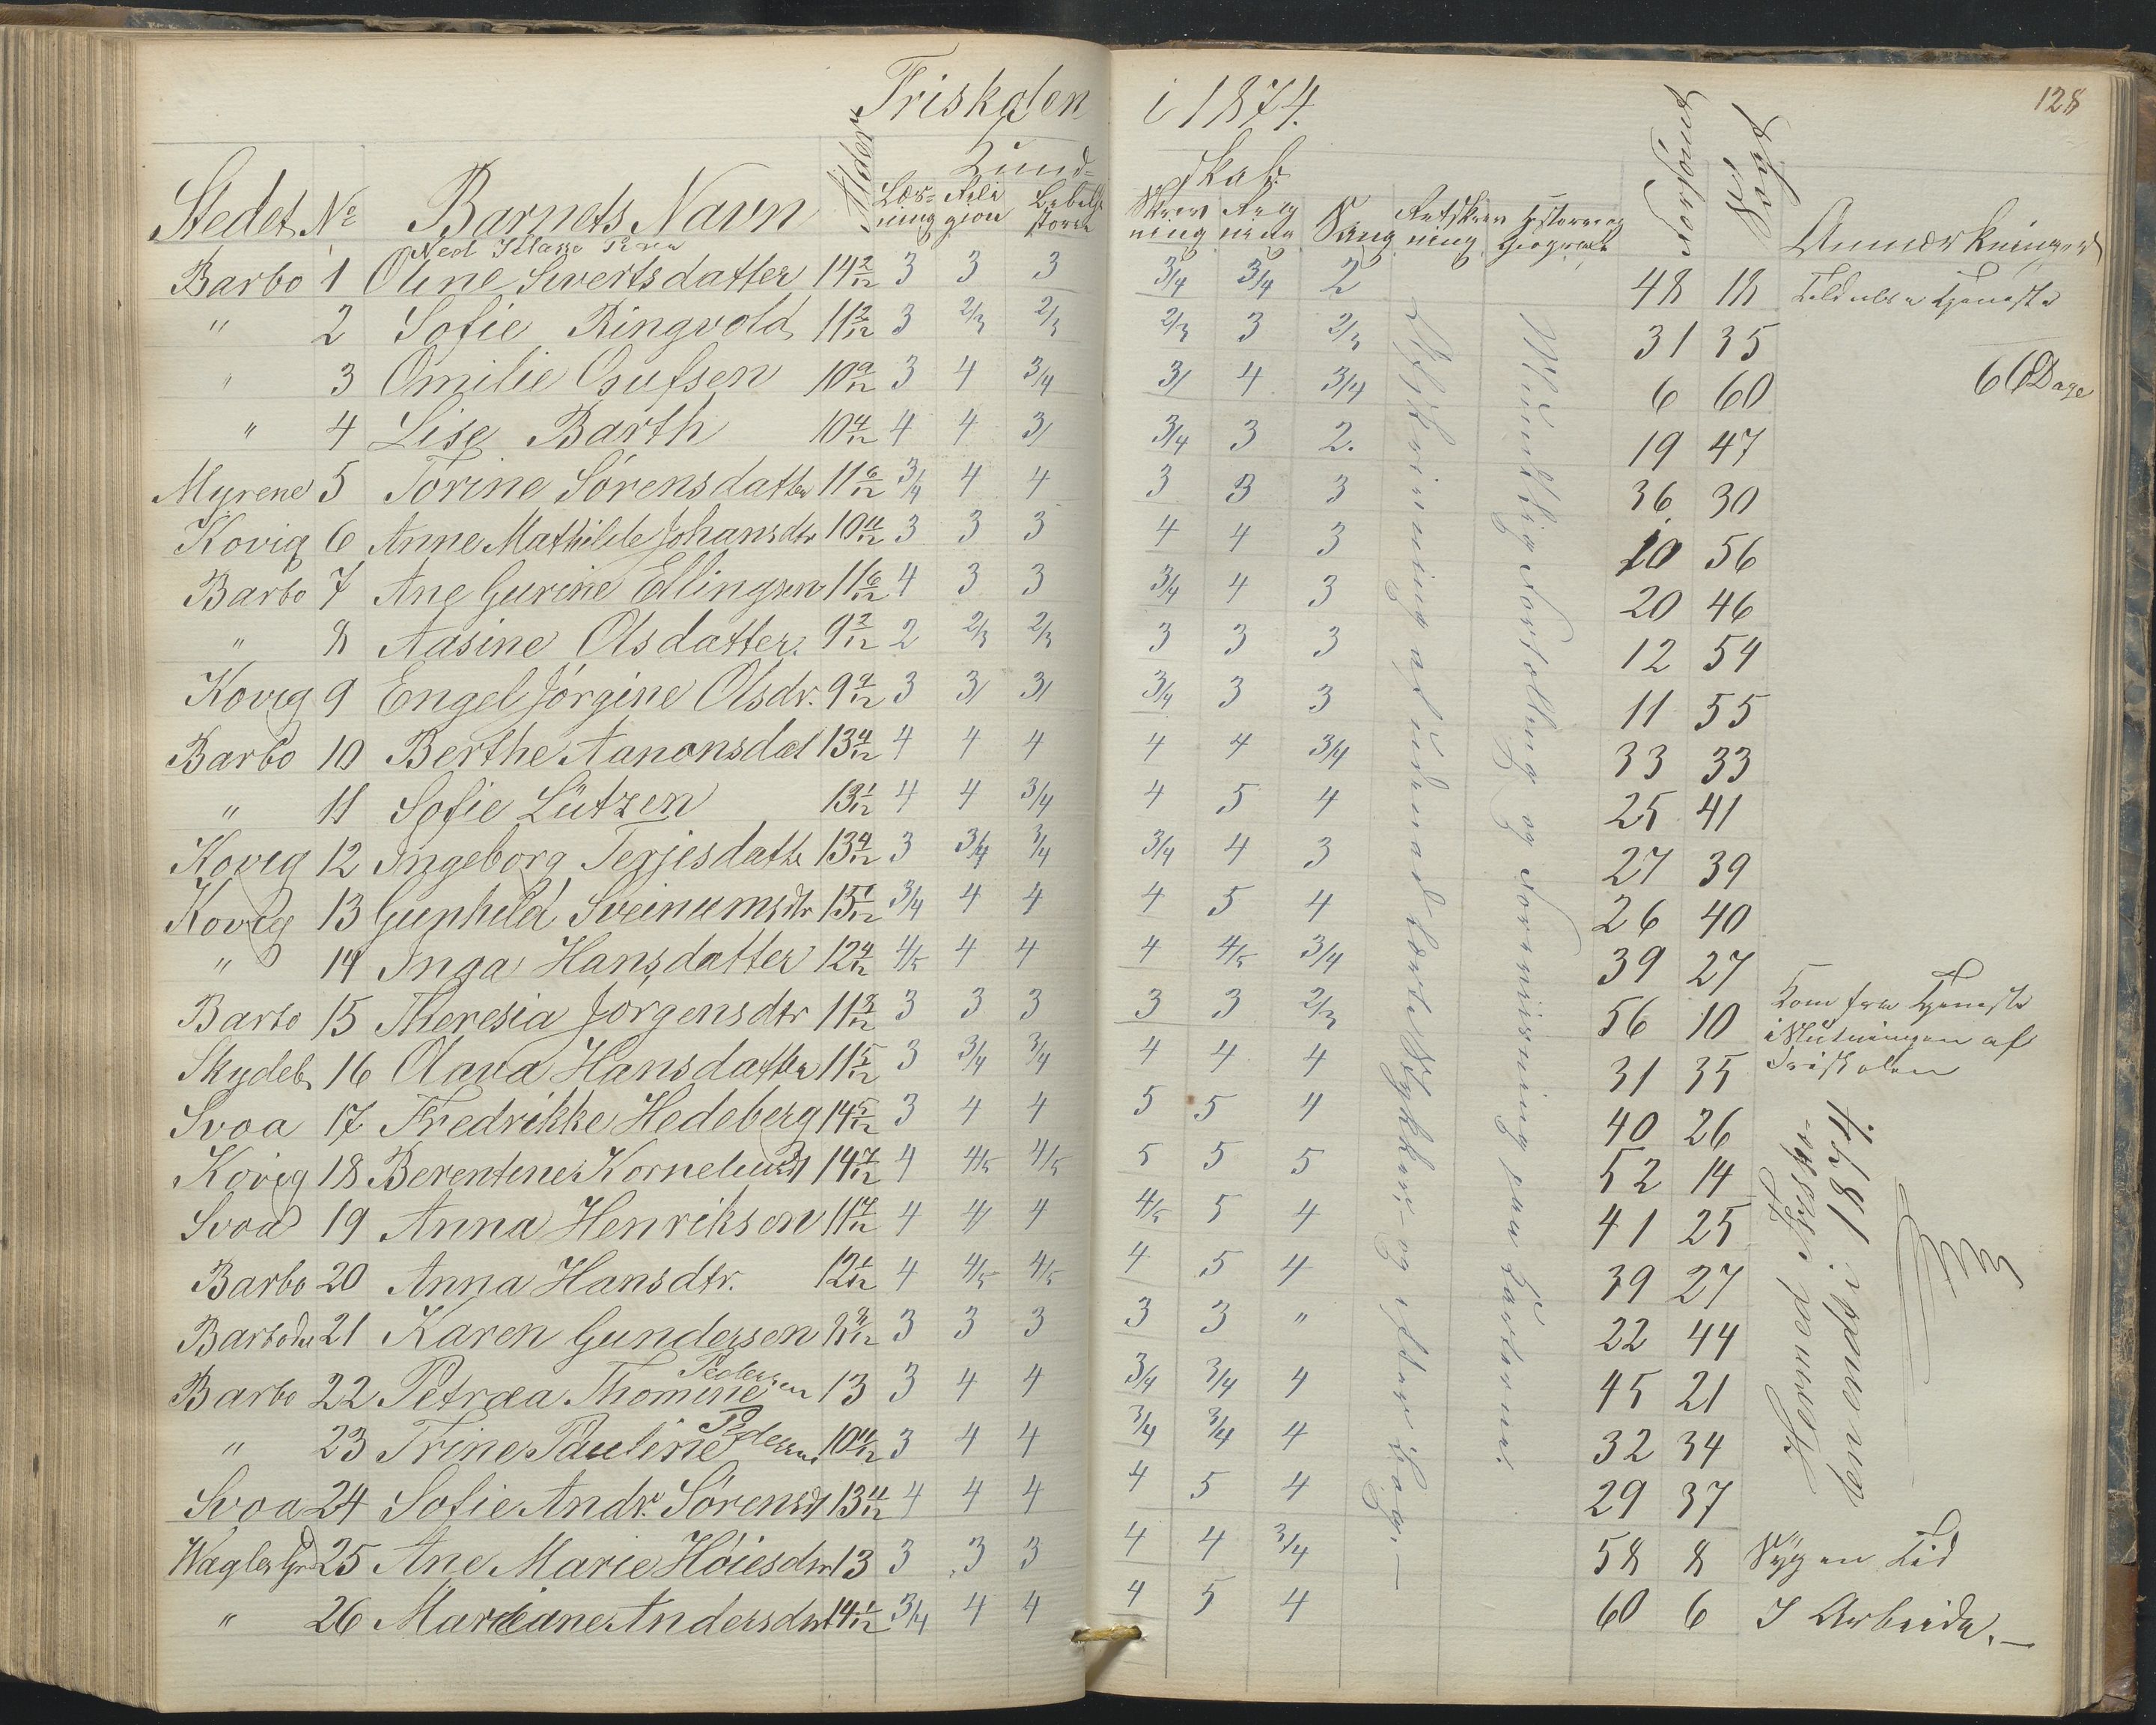 128
Friskolen i 1874.
Stedet No Barnets Navn Alder Kund- skab.
Læs- ning Reli gion Bibelhi storie Skriv ning Reg ning Sang Retskriv ning Historie og Geografi Forsømt Søgt Anmærkninger
Ned Klasse
Barbo 1 Oline Sivertsdatter 14 2/12 3 3 3 3/4 3/4 2 48 18 Tildels i Tjeneste
" 2 Sofie Ringvold 11 2/12 3 2/3 2/3 2/3 3 2/3 31 35
" 3 Omilie Osufsen 10 9/12 3 4 3/4 3/ 4 3/4 6 60 66 Dage
" 4 Lise Barth 10 4/12 4 4 3/ 3/4 3 2. 19 47
Myrene 5 Torine Sörensdatter 11 6/12 3/4 4 4 3 3 3 36 30
Kovig 6 Anne Mathilde Johansdtr 10 11/12 3 3 3 4 4 3 10 56
Barbo 7 Ane Gurine Ellingsen 11 6/12 4 3 3 3/4 4 3 20 46
" 8 Aasine Olsdatter. 9 2/12 2 2/3 2/3 3 3 3 12 54
Kovig 9 Engel Jörgine Olsdr. 9 9/12 3 3/ 3/ 3/4 3 3 11 55
Barbo 10 Berthe Aanonsdat 13 4/12 4 4 4 4 4 3/4 33 33
" 11 Sofie Lützen 13 1/12 4 4 3/4 4 5 4 25 41
Kovig 12 Ingeborg Terjesdatte 13 4/12 3 3/4 3/4 3/4 4 3 27 39
Kovig 13 Gunhild Sveinumsdtr 15 1/12 3/4 4 4 4 5 4 26 40
" 14 Inga Hansdatter 12 4/12 4/5 4 4 4 4/5 3/4 39 27
Barbo 15 Theresia Jörgensdtr 11 8/12 3 3 3 3 3 2/3 56 10 Kom fra Tjeneste
i Slutningen af
Friskolen
Skydeb. 16 Olava Hansdatter 11 5/12 3 3/4 3/4 4 4 4 31 35
Svoa 17 Fredrikke Hedeberg 14 5/12 3 4 4 5 5 4 40 26
Kovig 18 Berentine Korneliusd 14 7/12 4 4/5 4/5 5 5 5 52 14
Svoa 19 Anna Henriksen 11 7/12 4 4 4 4/5 5 4 41 25
Barbo 20 Anna Hansdtr. 12 1/12 4 4/5 4/5 4 5 4 39 27
21 Karen Gundersen 8 8/12 3 3 3 3 3 " 22 44
Barbo 22 Petræa Thomine Pedersen 13 3 4 4 3/4 3/4 4 45 21
" 23 Trine Pauline Pedersen 10 11/12 3 4 4 3/4 3/4 4 32 34
Svoa 24 Sofie Andr. Sörensd 13 11/12 4 4 4 4 5 4 29 37
25 Ane Marie Höiesdtr 13 3 3 3 4 4 3/4 58 8 Syg en Tid
" 26 Mariane Andersdtr 14 1/12 3/4 4 4 4 5 4 60 6 I Arbeide.—
Afskrivning af udenad lærte Stykker, og efter Bog.—
Mundtlig Fortælling og Forevisning paa Karterne.
Hermed Frisko-
len endt i 1874.